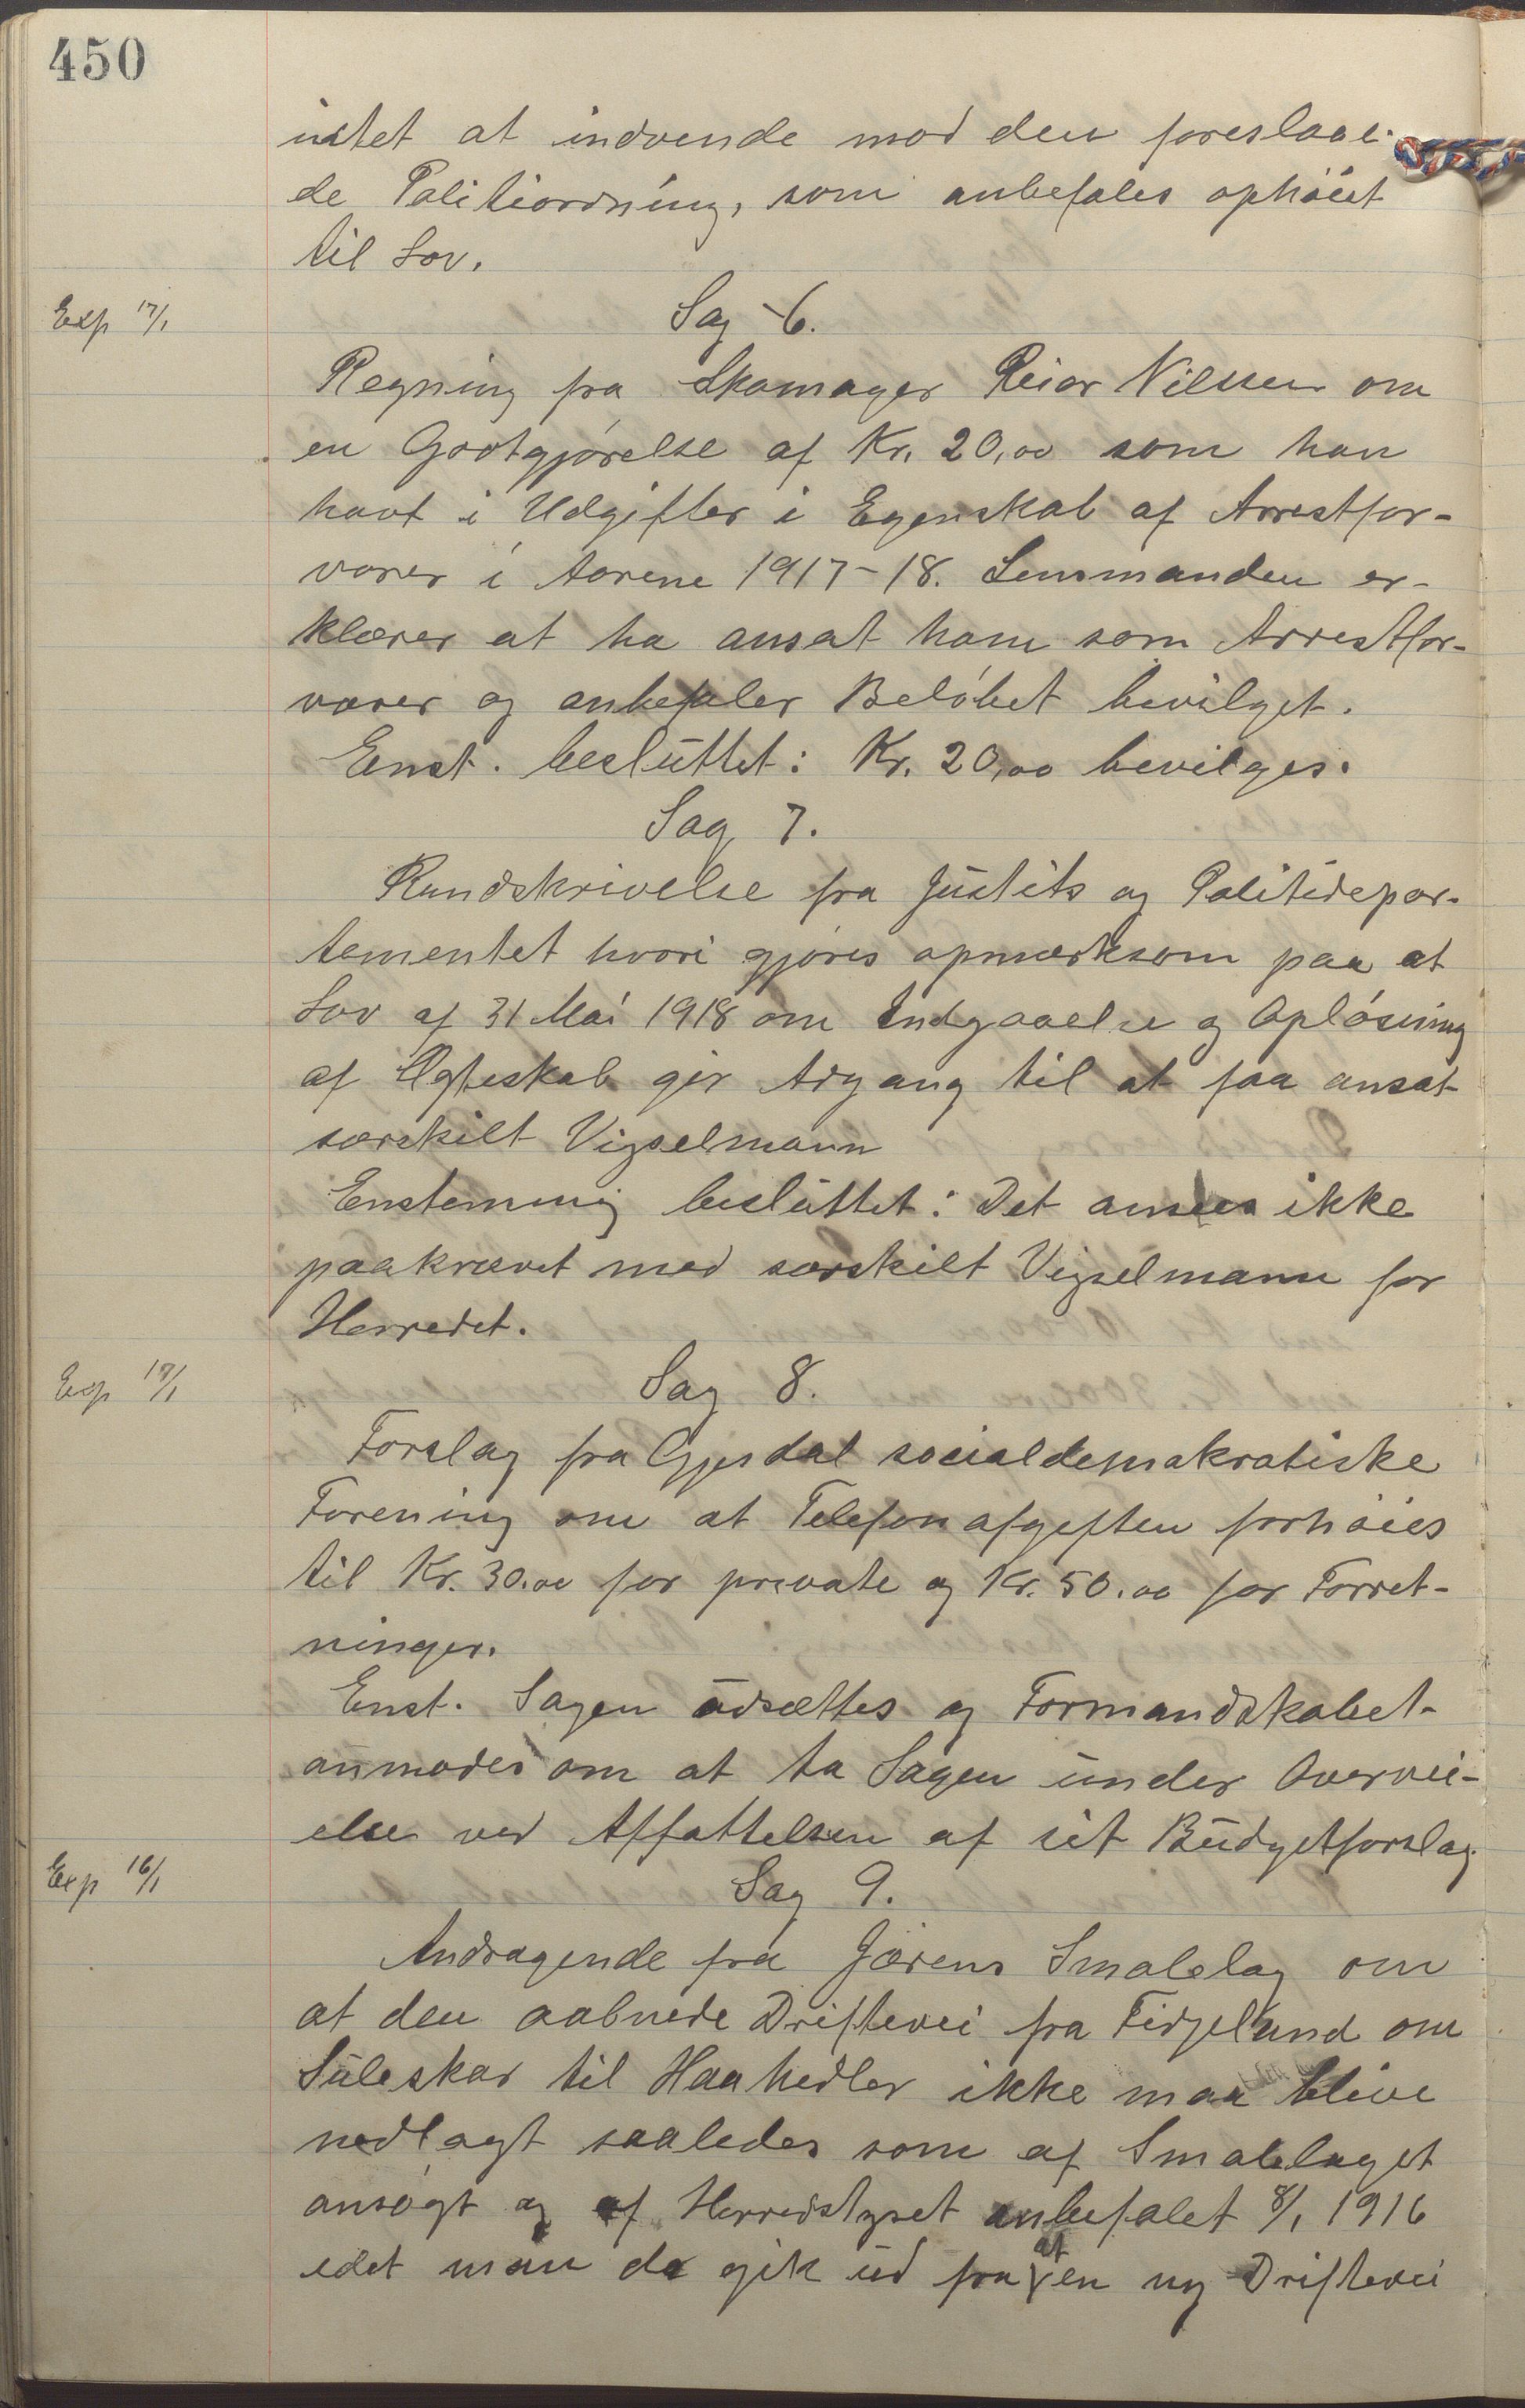 450
intet at indvende mod den foreslaae-
de Politiordning, som anbefales ophöiet
til Lov.
Exp 17/1
Sag 6.
Regning fra Skomager Reier Nilssen om
en Godtgjörelse af Kr. 20,00 som han
havt i Udgifter i Egenskab af Arrestfor-
varer i Aarene 1917-18. Lensmanden er-
klærer at ha ansat ham som Arrestfor-
varer og anbefaler Belöbet bevilget.
Enst. besluttet: Kr. 20,00 bevilges.
Sag 7.
Rundskrivelse fra Justits og Politidepar-
tementet hvori gjöres opmerksom paa at
Lov af 31 Mai 1918 om Indgaaelse og Oplösning
af Ægteskab gir Adgang til at faa ansat
særskilt Vigselmann
Enstemmig besluttet: Det ansees ikke
paakrævet med særskilt Vigselmann for
Herredet.
Exp 17/1
Sag 8.
Forslag fra Gjesdal socialdemokratiske
Forening om at Telefonafgiften forhöies
til Kr. 30.00 for private og Kr. 50.00 for Forret-
ninger.
Enst. Sagen udsættes og Formandskabet
anmodes om at ta Sagen under Overvei-
else ved Affattelsen af sit Budgetforslag.
Exp 16/1
Sag 9.
Andragende fra Jærens Smalelag om
at den aabnede Driftevei fra Fidjeland om
Suleskar til Haahedler ikke maa blive
nedlagt saaledes som af Smalelaget
ansögt og af Herredstyret anbefalet 8/1 1916
idet man da gik ud fra at en ny Driftevei